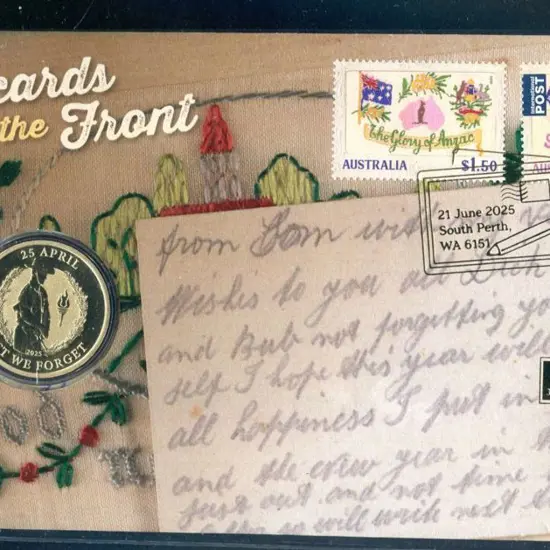 cards
the Front
25 APRIL
2025
T WE FORGET
The Glory of Anzac
AUSTRALIA
$1.50
International
POST
AU
21 June 2025
South Perth,
WA 6151
from Tom with
Wishes to you all Dick
and Bub not forgetting yo
self I hope this year will
all happiness I put in
and the New year in t
just out and not time
so will write next t